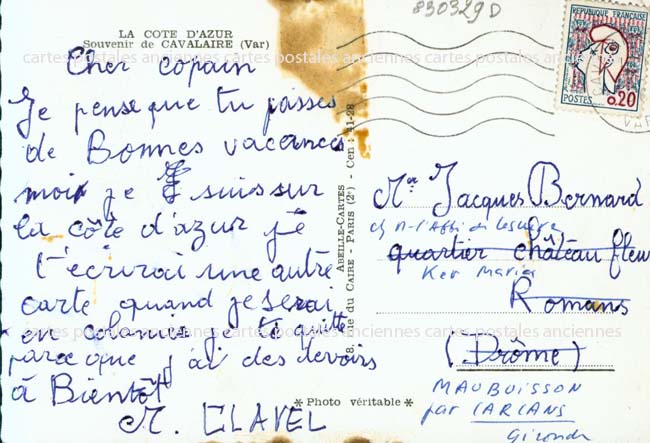 830329D
LA COTE D'AZUR
Souvenir de CAVALAIRE (Var)
Cher copain
Je pense que tu passes
de Bonnes vacances
moi je suis sur
la côte d'azur je
t'écrirai une autre
carte quand je serai
en colonie je te quitte
parce que j'ai des devoirs
à Bientôt
M. CLAVEL
ABEILLE-CARTES
8, Rue du CAIRE - PARIS (2e) - Cen : 41-28
* Photo véritable *
REPUBLIQUE FRANÇAISE
POSTES 0,20
VAR
Mr Jacques Bernard
ch M. l'Abbé de
quartier château fleuri
Ker Maria
Romans
(Drôme)
MAUBUISSON
par CARCANS
Gironde
cartes postales anciennes cartes postales anciennes cartes postales anciennes
cartes postales anciennes cartes postales anciennes cartes postales anciennes